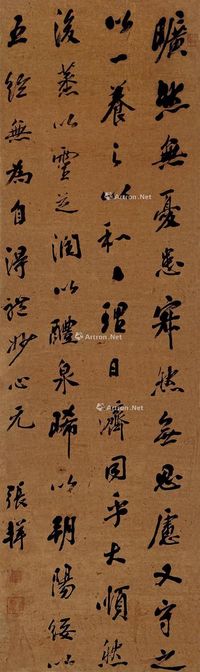 曠然無憂患寂然無思慮又守之
以一養之以和々理日濟同乎大順然
後蒸以靈芝潤以醴泉晞以朝陽綏以
五絃無為自得體妙心元
張
Artron.Net
Artron.Net
Artron.Net